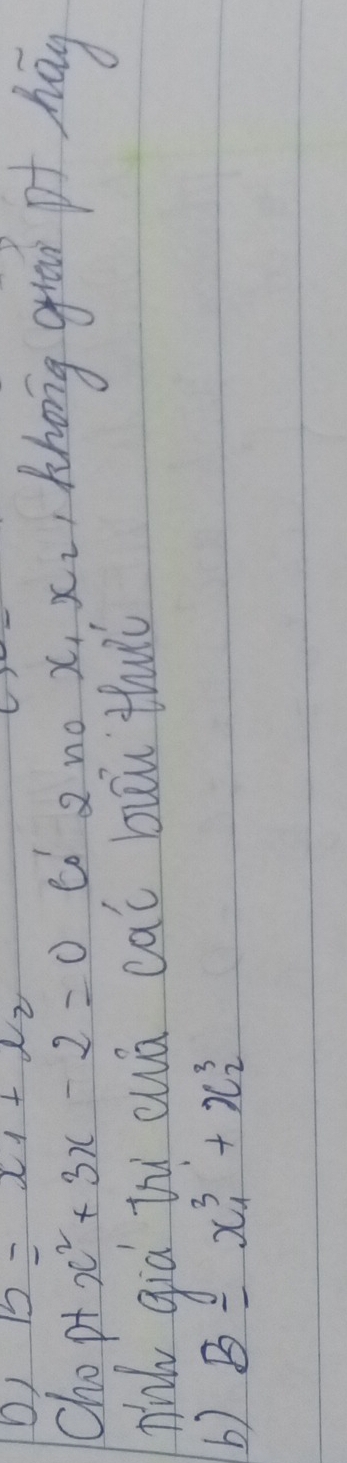 b) B = x₁ + x₂
Cho pt x² + 3x - 2 = 0 có 2 no x₁, x₂, không giải pt hãy
tính giá trị của các biểu thức
b) B = x₁³ + x₂³